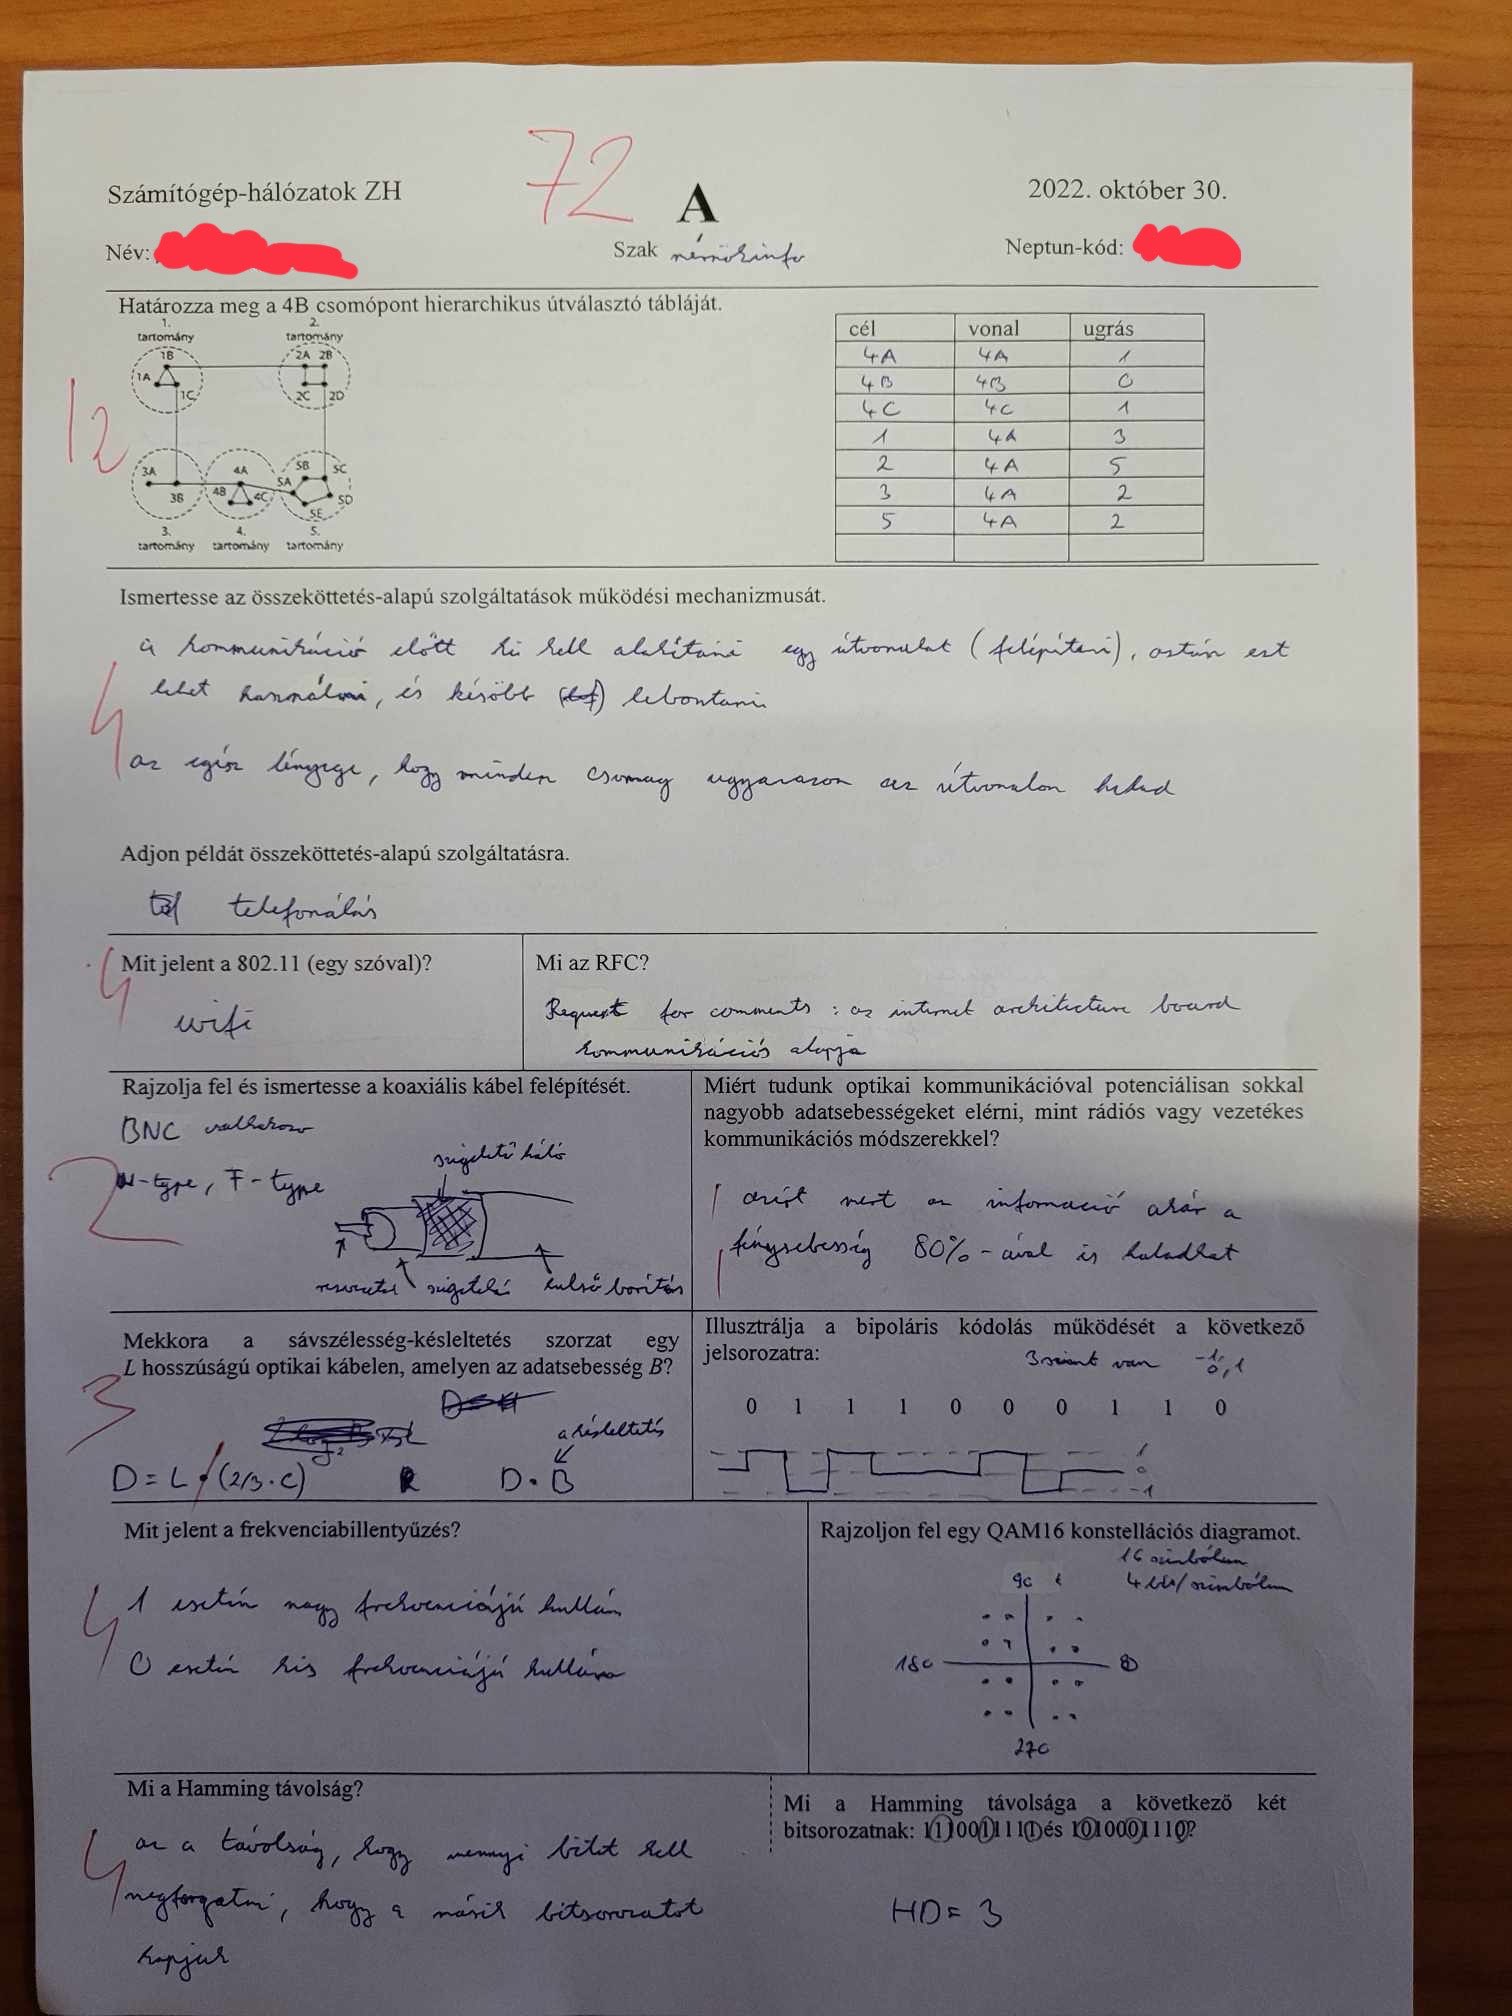 72
Számítógép-hálózatok ZH
A
2022. október 30.
Név:
Szak mérnökinfo
Neptun-kód:
Határozza meg a 4B csomópont hierarchikus útválasztó tábláját.
1. tartomány
2. tartomány
1B
1A
1C
2A 2B
2C 2D
3A
3B
4A
4B
4C
5A
5B
5C
5D
5E
3. tartomány
4. tartomány
5. tartomány
12
cél vonal ugrás
4A 4A 1
4B 4B 0
4C 4C 1
1 4A 3
2 4A 5
3 4A 2
5 4A 2
Ismertesse az összeköttetés-alapú szolgáltatások működési mechanizmusát.
a kommunikáció előtt ki kell alakítani egy útvonalat (felépíteni), aztán ezt
lehet használni, és később lebontani
4
az egész lényege, hogy minden csomag ugyanazon az útvonalon halad
Adjon példát összeköttetés-alapú szolgáltatásra.
telefonálás
4
Mit jelent a 802.11 (egy szóval)?
wifi
Mi az RFC?
Request for comments : az internet architecture board
kommunikációs alapja
Rajzolja fel és ismertesse a koaxiális kábel felépítését.
BNC csatlakozó
N-type, F-type
2
szigetelő háló
rézvezeték
szigetelés
külső borítás
Miért tudunk optikai kommunikációval potenciálisan sokkal
nagyobb adatsebességeket elérni, mint rádiós vagy vezetékes
kommunikációs módszerekkel?
azért mert az információ akár a
fénysebesség 80%-ával is haladhat
Mekkora a sávszélesség-késleltetés szorzat egy
L hosszúságú optikai kábelen, amelyen az adatsebesség B?
3
a késleltetés
D = L (2/3 · C)
D · B
Illusztrálja a bipoláris kódolás működését a következő
jelsorozatra:
3 szint van -1, 0, 1
0 1 1 1 0 0 0 1 1 0
1
0
-1
Mit jelent a frekvenciabillentyűzés?
4
1 esetén nagy frekvenciájú hullám
0 esetén kis frekvenciájú hullám
Rajzoljon fel egy QAM16 konstellációs diagramot.
16 szimbólum
4 bit/szimbólum
90
180
0
270
Mi a Hamming távolság?
4
az a távolság, hogy mennyi bitet kell
megforgatni, hogy a másik bitsorozatot
kapjuk
Mi a Hamming távolsága a következő két
bitsorozatnak: 1110011111 és 1010001110?
HD = 3